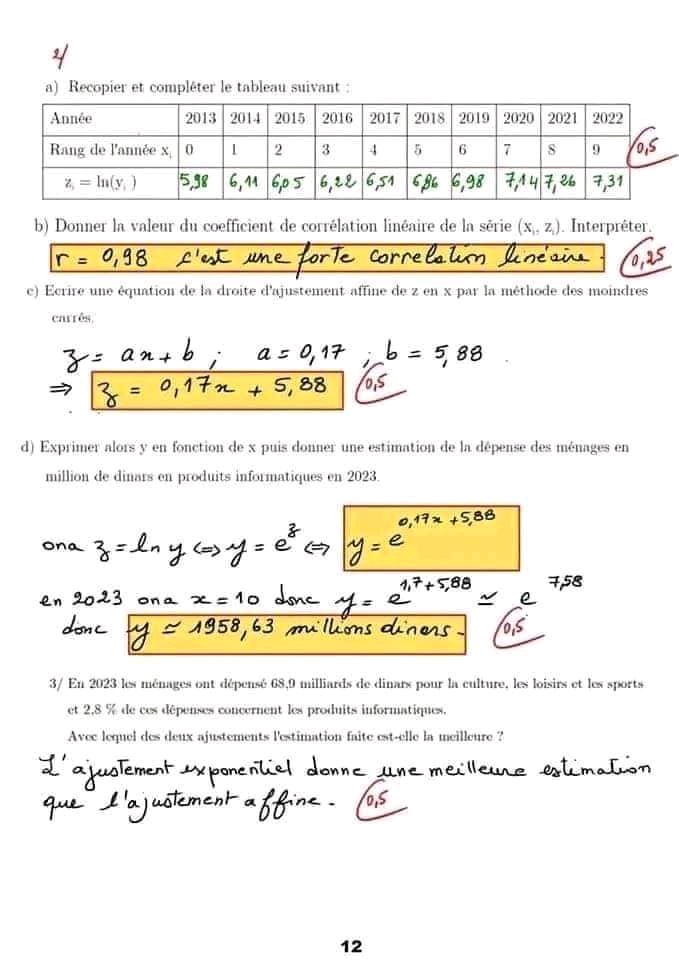 2/
a) Recopier et compléter le tableau suivant :
Année 2013 2014 2015 2016 2017 2018 2019 2020 2021 2022
Rang de l'année xᵢ 0 1 2 3 4 5 6 7 8 9 0,5
zᵢ = ln(yᵢ ) 5,98 6,11 6,05 6,22 6,51 6,86 6,98 7,14 7,26 7,31
b) Donner la valeur du coefficient de corrélation linéaire de la série (xᵢ, zᵢ). Interpréter.
r = 0,98 c'est une forte correlation linéaire. 0,25
c) Ecrire une équation de la droite d'ajustement affine de z en x par la méthode des moindres
carrés.
z = ax + b ; a = 0,17 ; b = 5,88
⇒ z = 0,17x + 5,88 0,5
d) Exprimer alors y en fonction de x puis donner une estimation de la dépense des ménages en
million de dinars en produits informatiques en 2023.
ona z = ln y ⇔ y = e^z ⇔ y = e^0,17x + 5,88
en 2023 ona x = 10 donc y = e^1,7 + 5,88 ≃ e^7,58
donc y ≃ 1958,63 millions dinars. 0,5
3/ En 2023 les ménages ont dépensé 68,9 milliards de dinars pour la culture, les loisirs et les sports
et 2,8 % de ces dépenses concernent les produits informatiques.
Avec lequel des deux ajustements l'estimation faite est-elle la meilleure ?
L'ajustement exponentiel donne une meilleure estimation
que l'ajustement affine. 0,5
12